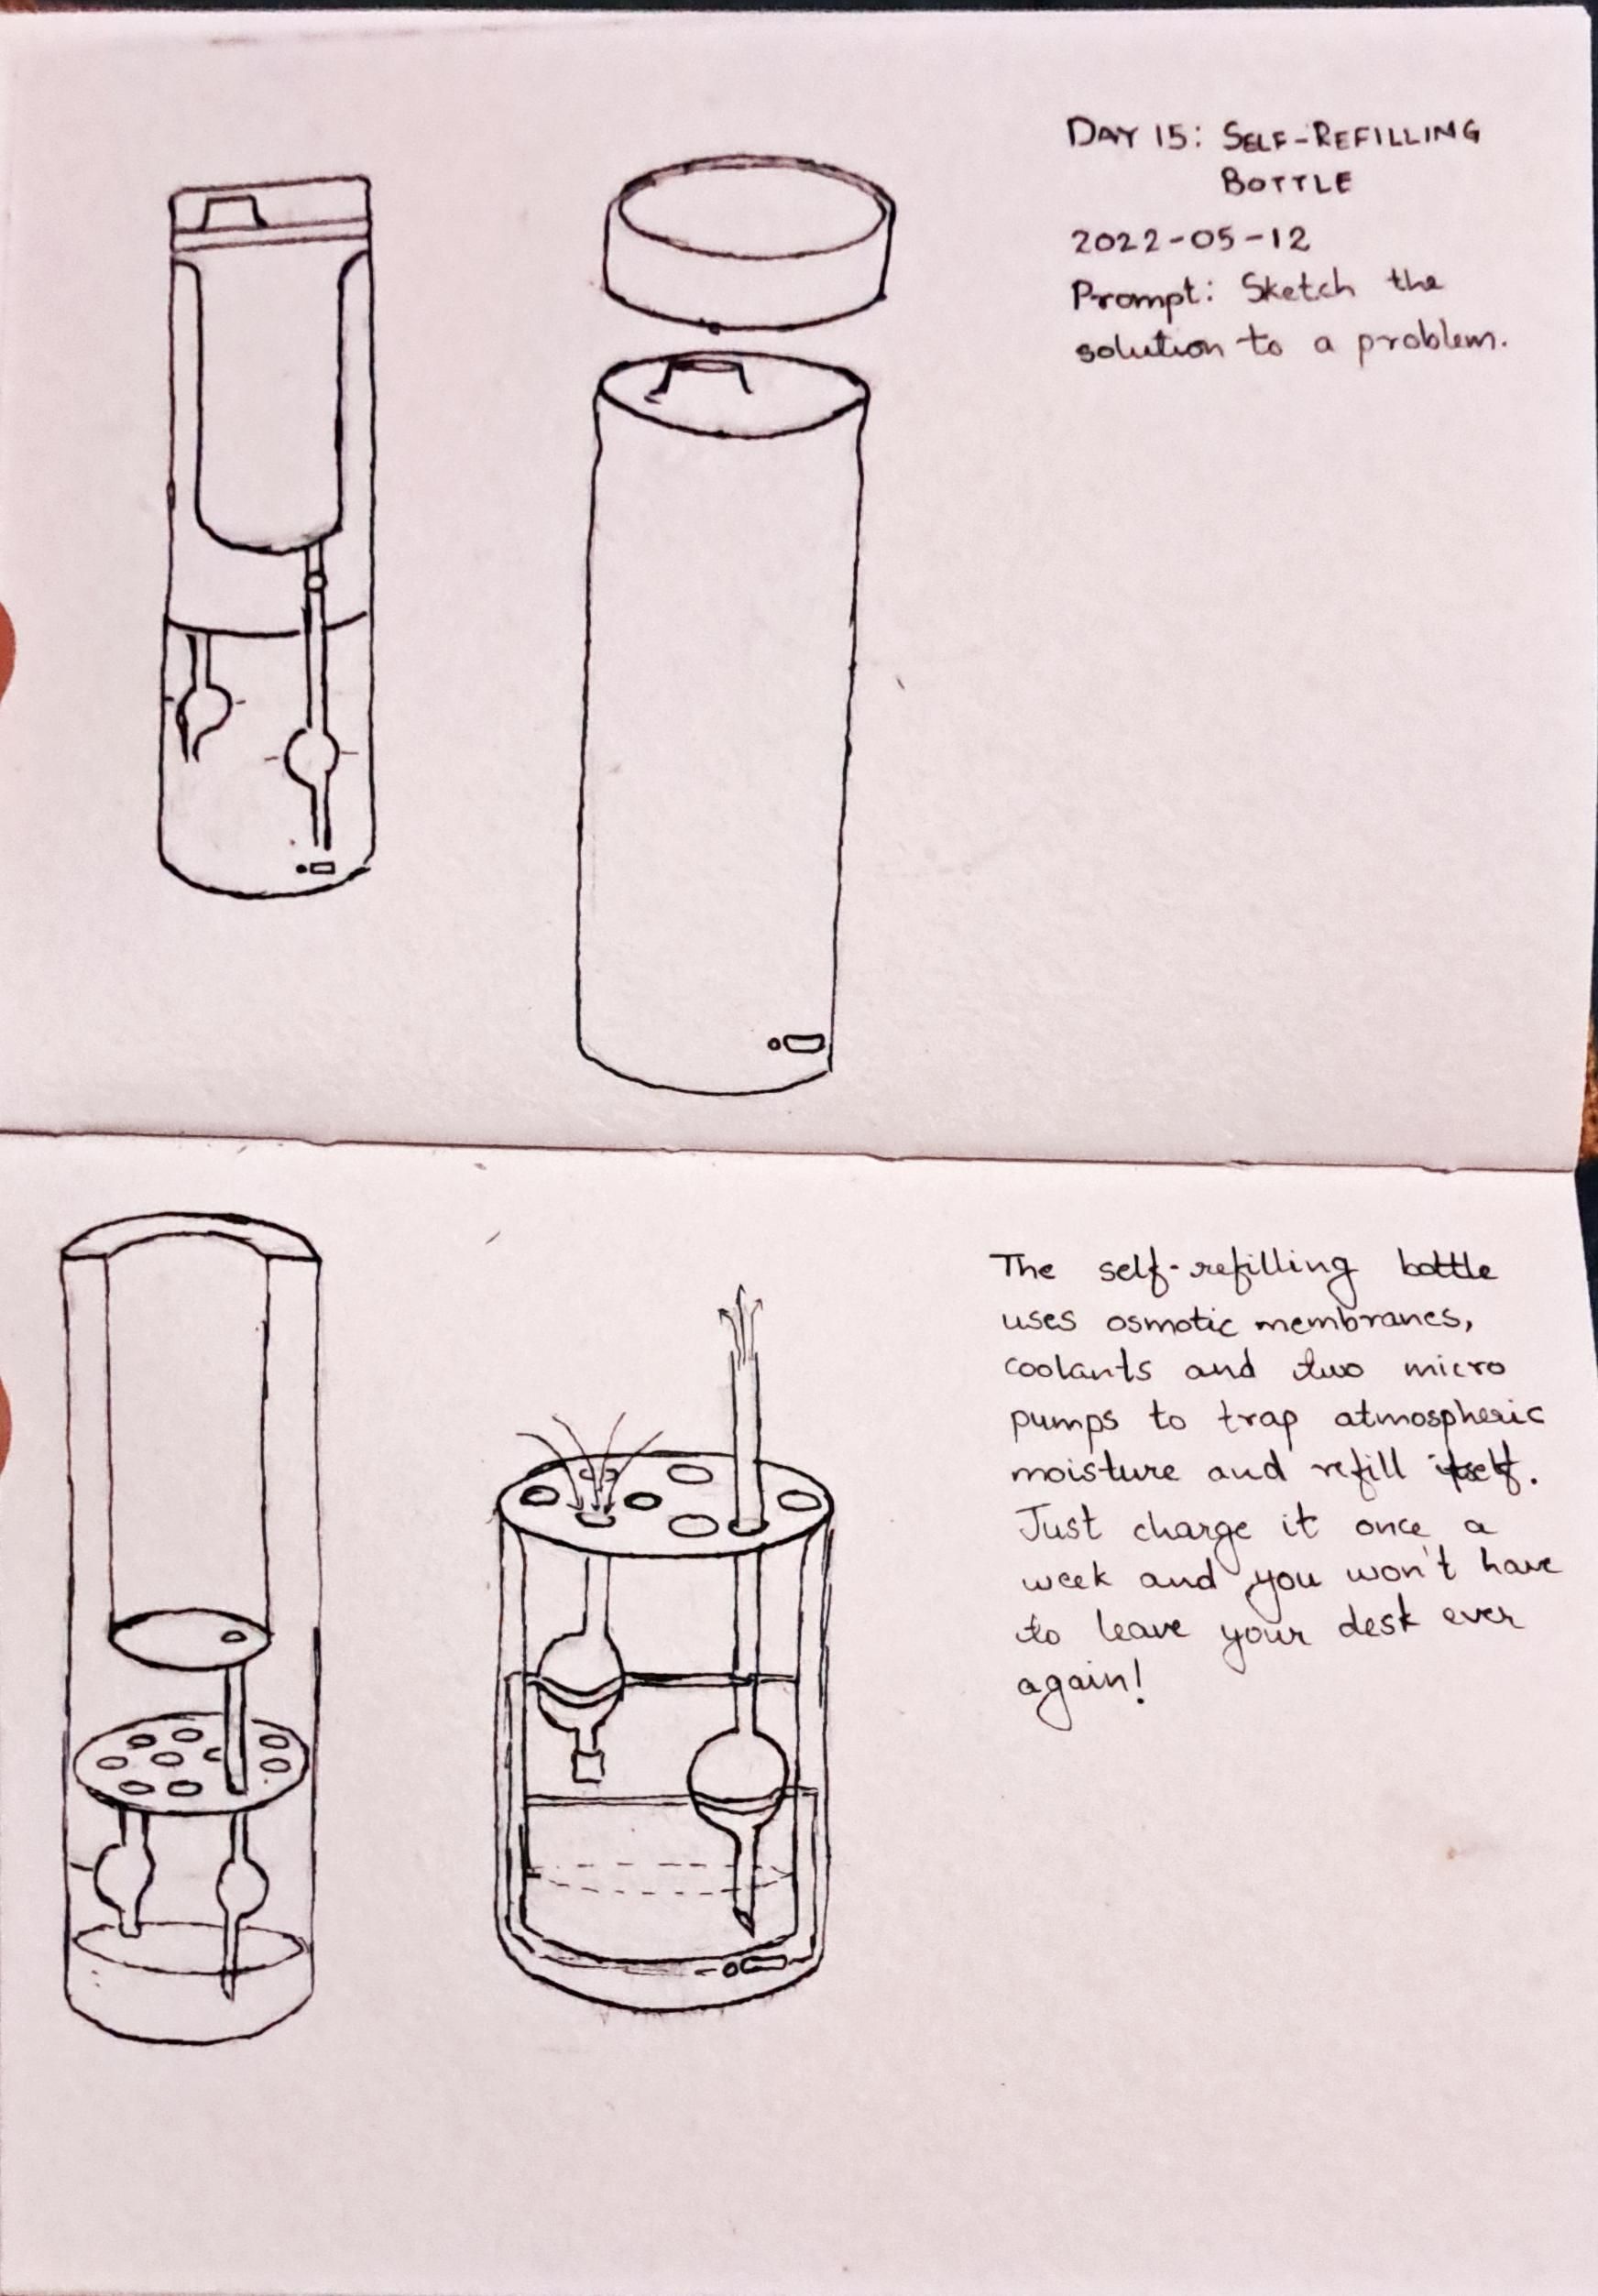 DAY 15: SELF-REFILLING
BOTTLE
2022-05-12
Prompt: Sketch the
solution to a problem.
The self-refilling bottle
uses osmotic membranes,
coolants and two micro
pumps to trap atmospheric
moisture and refill itself.
Just charge it once a
week and you won't have
to leave your desk ever
again!